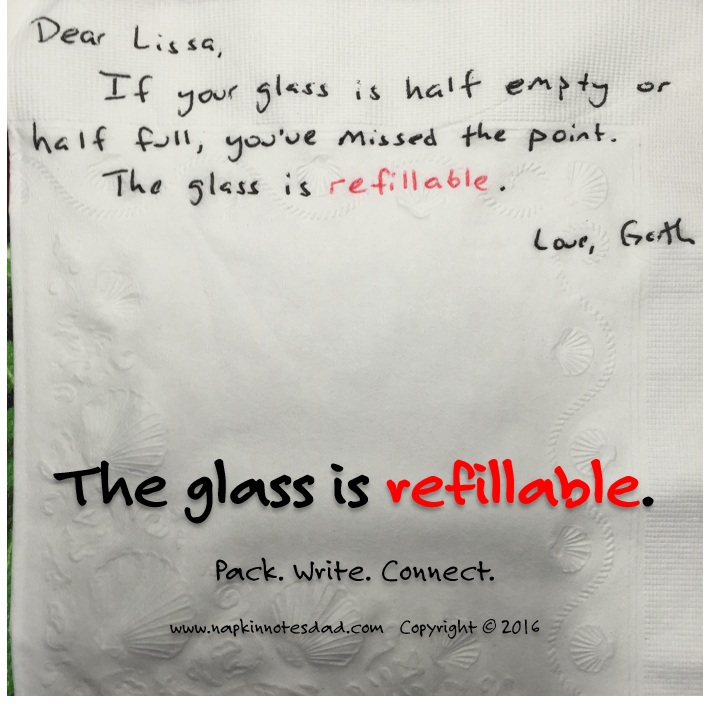 Dear Lissa,
If your glass is half empty or
half full, you've missed the point.
The glass is refillable.
Love, Garth
The glass is refillable.
Pack. Write. Connect.
www.napkinnotesdad.com Copyright © 2016